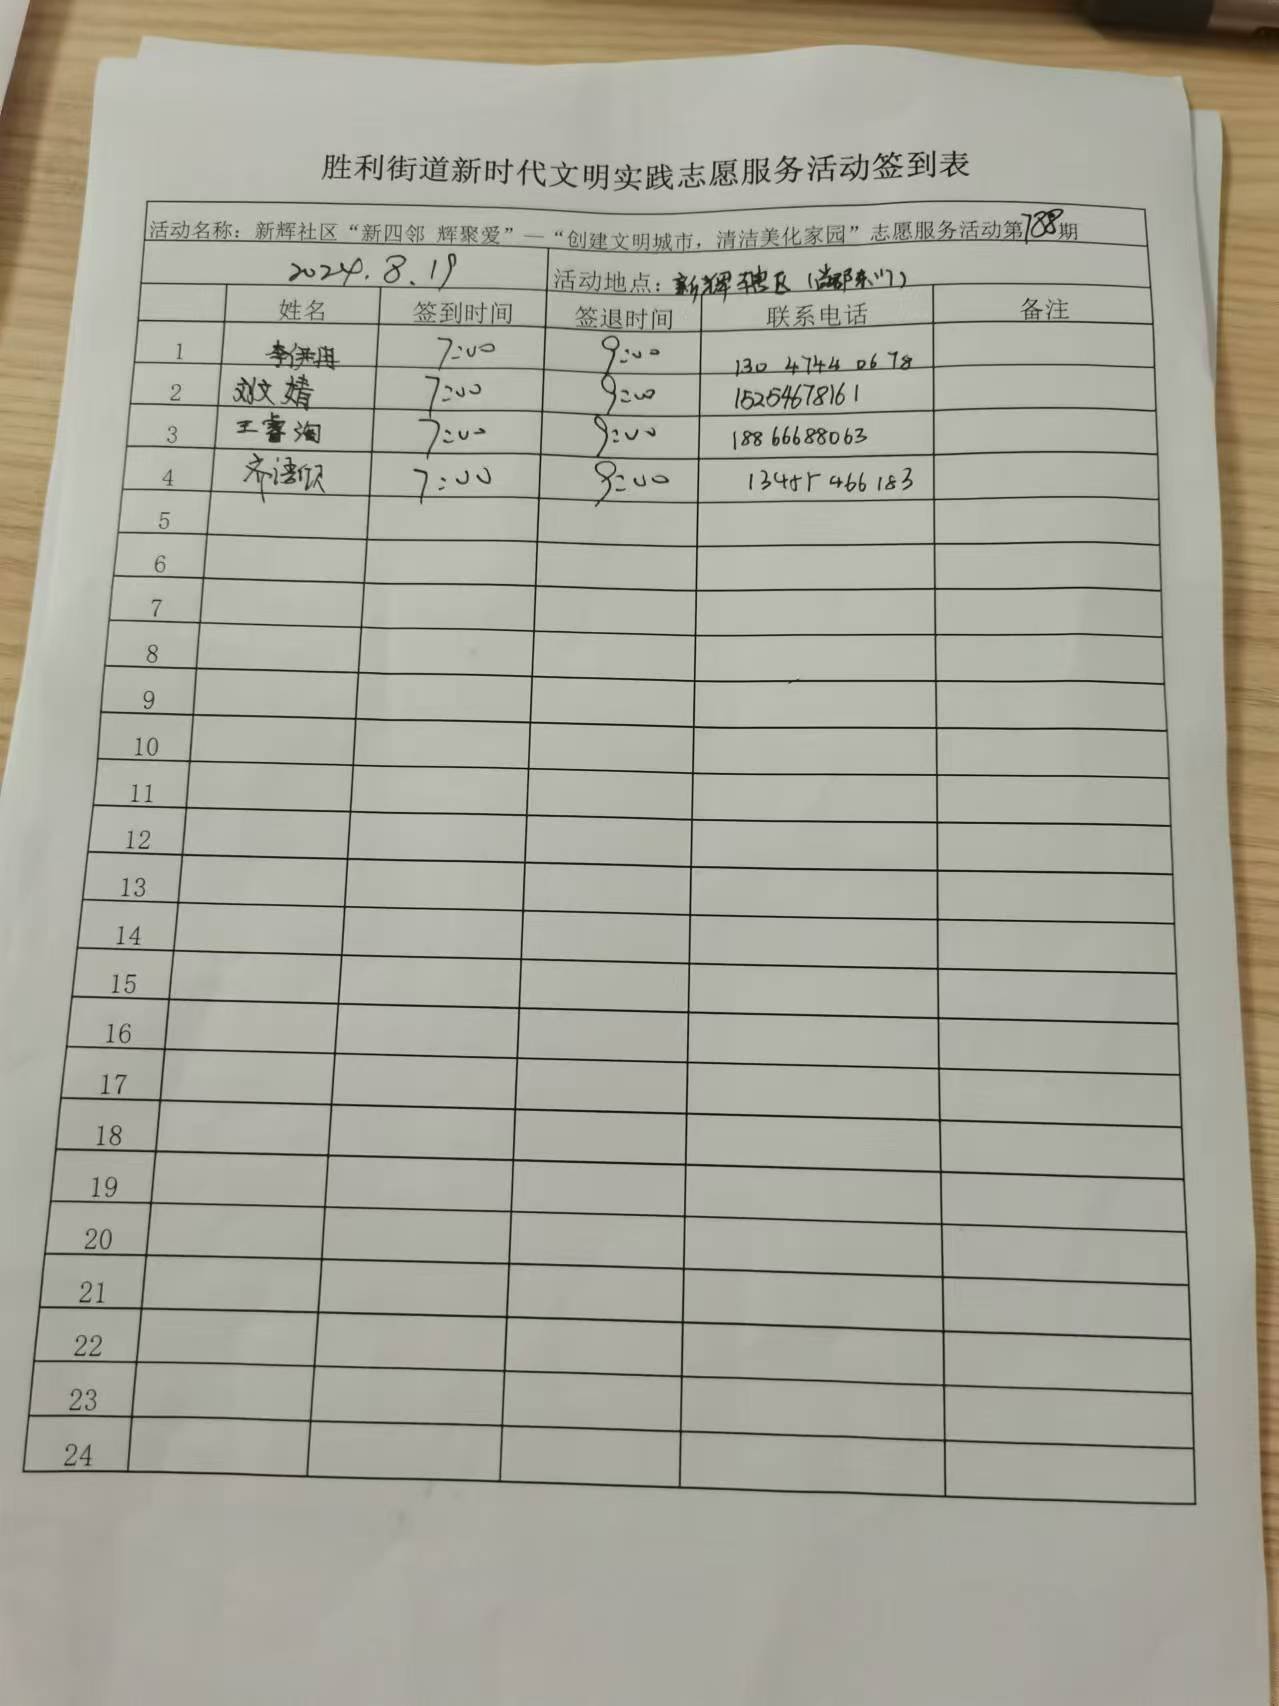 胜利街道新时代文明实践志愿服务活动签到表
活动名称：新辉社区“新四邻 辉聚爱”—“创建文明城市，清洁美化家园”志愿服务活动第788期
2024.8.19 活动地点：新辉辖区（尚郡东门）
姓名 签到时间 签退时间 联系电话 备注
1 李伊 7:00 9:00 130 4744 0678
2 刘文婧 7:00 9:00 15254678161
3 王睿淘 7:00 9:00 18866688063
4 齐语欣 7:00 9:00 13455466183
5
6
7
8
9
10
11
12
13
14
15
16
17
18
19
20
21
22
23
24